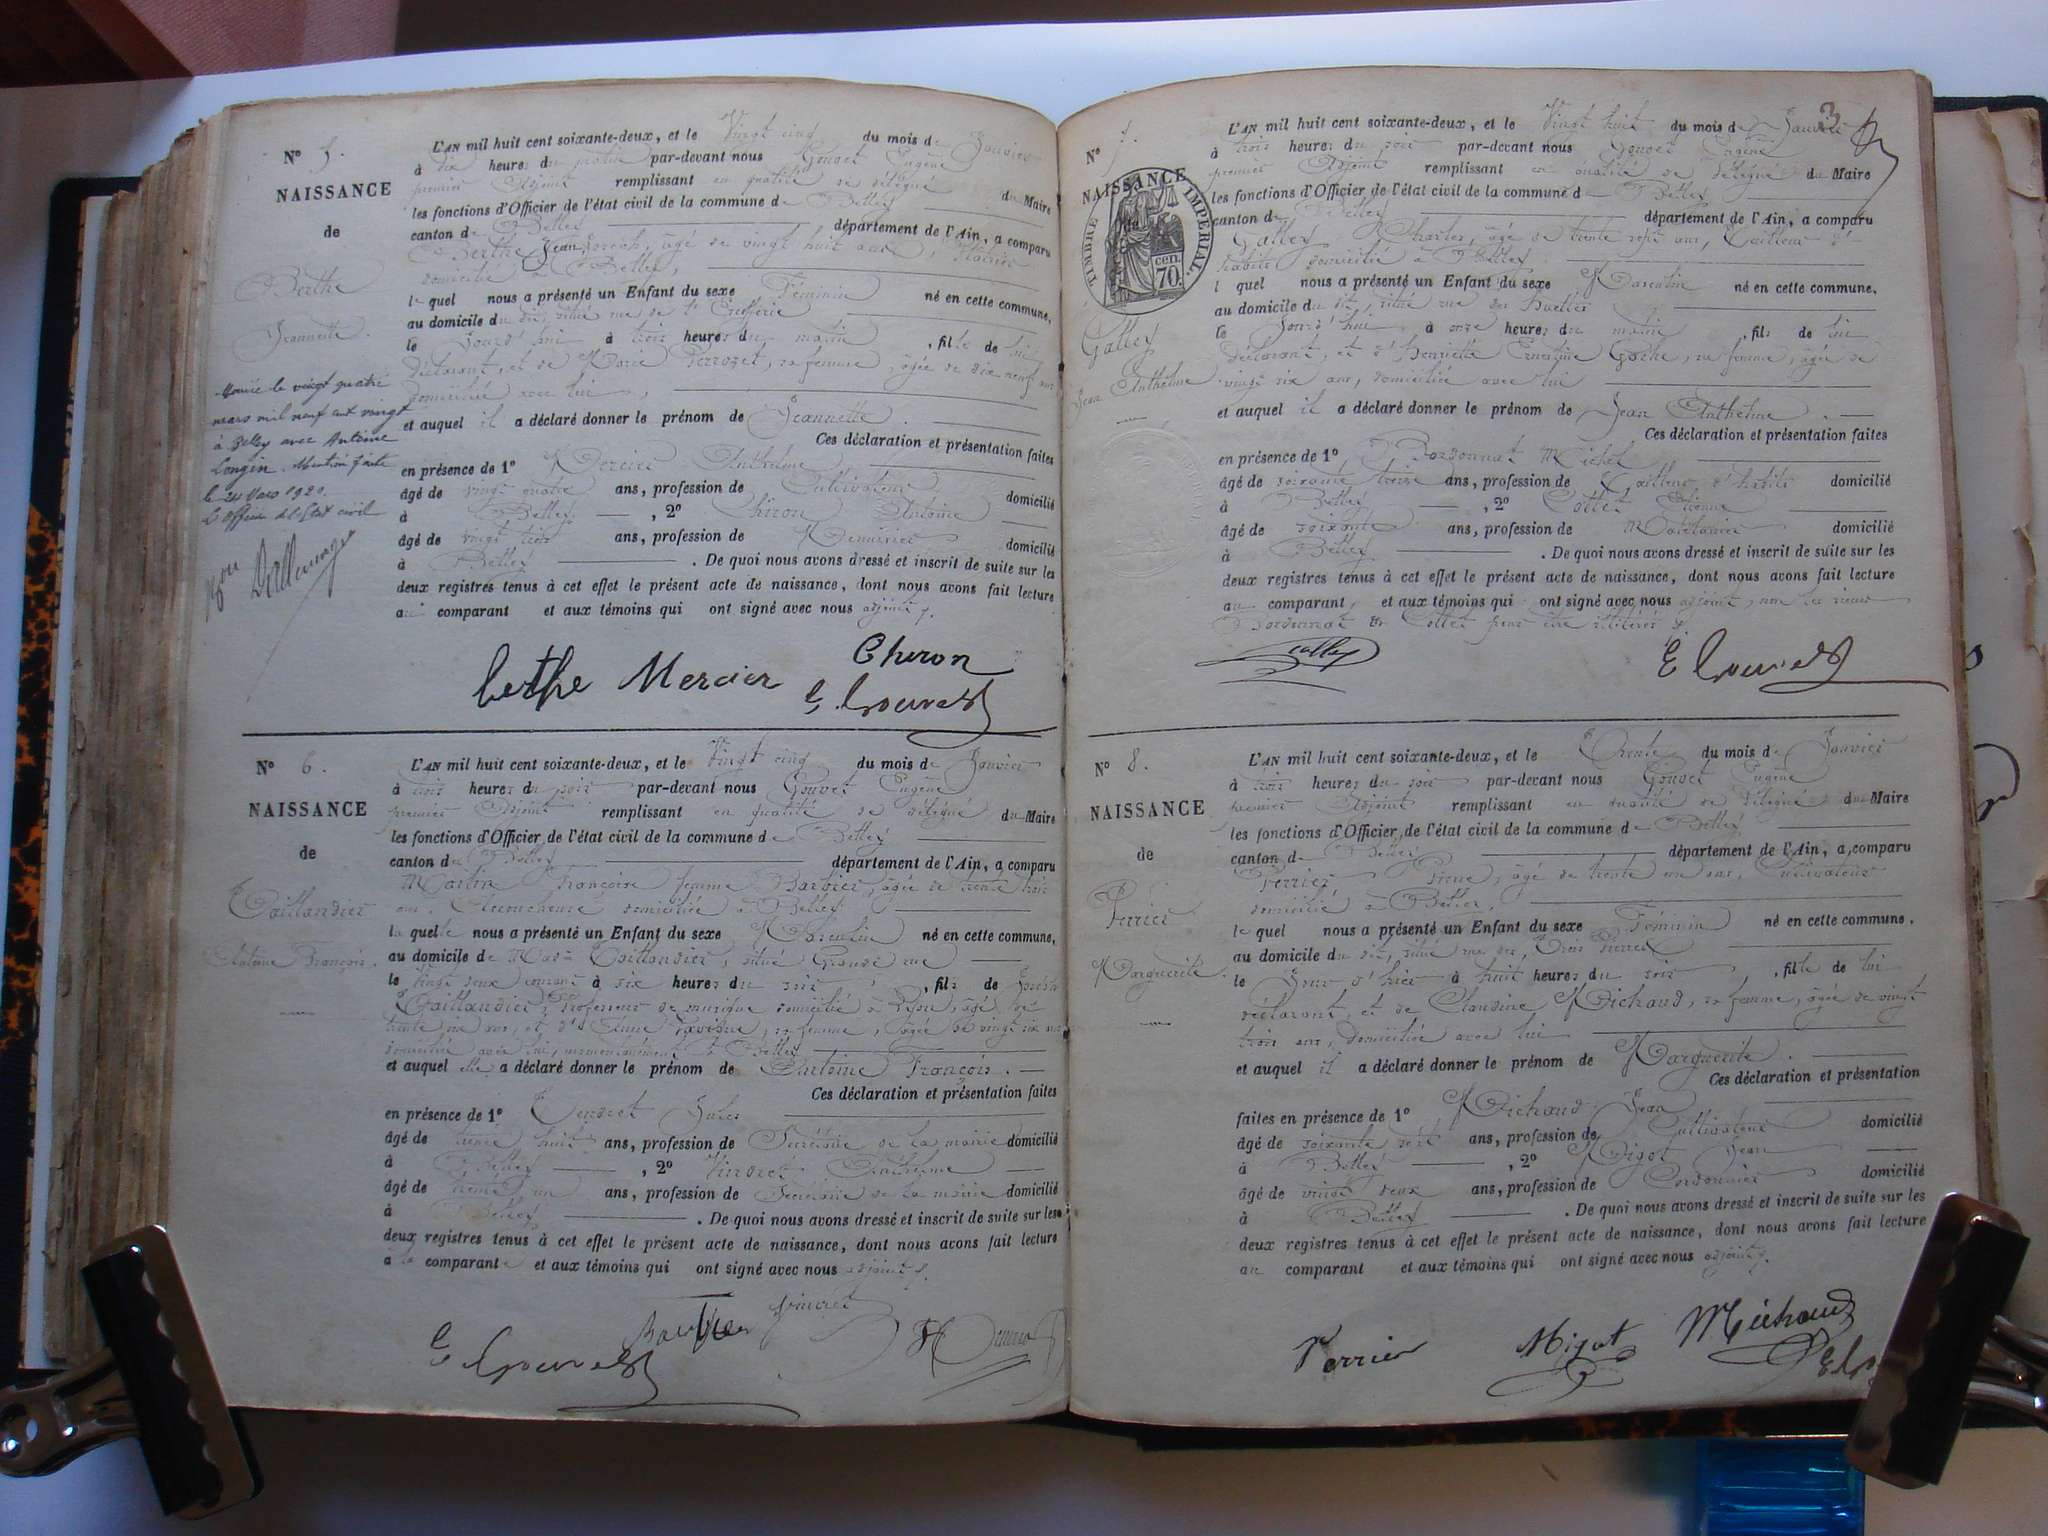 N° 5.
NAISSANCE
de
Berthe
Jeannette.
Mariée le vingt quatre
mars mil neuf cent vingt
à Belley avec Antoine
Longin. Mention faite
le 24 Mars 1920.
L'officier de l'Etat civil
L'AN mil huit cent soixante-deux, et le Vingt cinq du mois de Janvier
à dix heures du matin par-devant nous Gouvet Eugène
premier Adjoint remplissant en qualité de délégué du Maire
les fonctions d'Officier de l'état civil de la commune de Belley
canton de Belley département de l'Ain, a comparu
Berthe Jean Joseph, âgé de vingt huit ans, Plâtrier
domicilié à Belley,
lequel nous a présenté un Enfant du sexe Féminin né en cette commune,
au domicile du dit, située rue de
le Jourd'hui à trois heures du matin, fille de lui
déclarant, et de Marie Perrozet, sa femme, âgée de dix neuf ans
domiciliée avec lui,
et auquel il a déclaré donner le prénom de Jeannette.
Ces déclaration et présentation faites
en présence de 1° Mercier Anthelme
âgé de vingt quatre ans, profession de Cultivateur domicilié
à Belley, 2° Chiron Antoine
âgé de vingt trois ans, profession de Menuisier domicilié
à Belley. De quoi nous avons dressé et inscrit de suite sur les
deux registres tenus à cet effet le présent acte de naissance, dont nous avons fait lecture
au comparant et aux témoins qui ont signé avec nous adjoint
berthe Mercier Chiron
E. Gouvet
N° 6.
NAISSANCE
de
Taillandier
Antoine François.
L'AN mil huit cent soixante-deux, et le Vingt cinq du mois de Janvier
à trois heures du soir par-devant nous Gouvet Eugène
premier Adjoint remplissant en qualité de délégué du Maire
les fonctions d'Officier de l'état civil de la commune de Belley
canton de Belley département de l'Ain, a comparu
Martin Françoise femme Barbier, âgée de trente trois
ans, Accoucheuse domiciliée à Belley
laquelle nous a présenté un Enfant du sexe Masculin né en cette commune,
au domicile de Mad. Taillandier, située Grande rue
le vingt deux courant à six heures du soir, fils de Joseph
Taillandier, professeur de musique domicilié à Lyon, âgé de
trente six ans, et d'Anne sa femme, âgée de vingt six ans
domiciliée avec lui, momentanément à Belley
et auquel elle a déclaré donner le prénom de Antoine François.
Ces déclaration et présentation faites
en présence de 1° Jules
âgé de trente huit ans, profession de Secrétaire de la mairie domicilié
à Belley, 2° Vincret Anthelme
âgé de trente un ans, profession de Secrétaire de la mairie domicilié
à Belley. De quoi nous avons dressé et inscrit de suite sur les
deux registres tenus à cet effet le présent acte de naissance, dont nous avons fait lecture
à la comparante et aux témoins qui ont signé avec nous adjoint
E. Gouvet Barbier Vincret
3
N° 7.
NAISSANCE
de
TIMBRE IMPERIAL
70 cen.
Galley
Jean Anthelme
L'AN mil huit cent soixante-deux, et le Vingt huit du mois de Janvier
à trois heures du soir par-devant nous Gouvet Eugène
premier Adjoint remplissant en qualité de délégué du Maire
les fonctions d'Officier de l'état civil de la commune de Belley
canton de Belley département de l'Ain, a comparu
Galley Charles, âgé de trente sept ans, Tailleur d'
habits domicilié à Belley
lequel nous a présenté un Enfant du sexe Masculin né en cette commune,
au domicile du dit, située rue des
le Jourd'hui à onze heures du matin, fils de lui
déclarant, et d'Henriette Ernestine Goche, sa femme, âgée de
vingt six ans, domiciliée avec lui
et auquel il a déclaré donner le prénom de Jean Anthelme.
Ces déclaration et présentation faites
en présence de 1° Bordonnat Michel
âgé de soixante treize ans, profession de Tailleur d'habits domicilié
à Belley, 2° Collet Etienne
âgé de soixante ans, profession de domicilié
à Belley. De quoi nous avons dressé et inscrit de suite sur les
deux registres tenus à cet effet le présent acte de naissance, dont nous avons fait lecture
au comparant, et aux témoins qui ont signé avec nous adjoint, non les sieurs
Bordonnat & Collet pour être illitérés
Galley E Gouvet
N° 8.
NAISSANCE
de
Perrier
Marguerite.
L'AN mil huit cent soixante-deux, et le Trente du mois de Janvier
à trois heures du soir par-devant nous Gouvet Eugène
premier Adjoint remplissant en qualité de délégué du Maire
les fonctions d'Officier de l'état civil de la commune de Belley
canton de Belley département de l'Ain, a comparu
Perrier Pierre, âgé de trente un ans, Cultivateur
domicilié à Belley,
lequel nous a présenté un Enfant du sexe Féminin né en cette commune.
au domicile du dit, situé rue des Trois Pierres
le Jour d'hier à huit heures du soir, fille de lui
déclarant, et de Claudine Michaud, sa femme, âgée de vingt
trois ans, domiciliée avec lui
et auquel il a déclaré donner le prénom de Marguerite.
Ces déclaration et présentation
faites en présence de 1° Michaud Jean
âgé de soixante sept ans, profession de Cultivateur domicilié
à Belley, 2° Migot Jean
âgé de vingt deux ans, profession de Cordonnier domicilié
à Belley. De quoi nous avons dressé et inscrit de suite sur les
deux registres tenus à cet effet le présent acte de naissance, dont nous avons fait lecture
au comparant et aux témoins qui ont signé avec nous adjoint
Perrier Migot Michaud